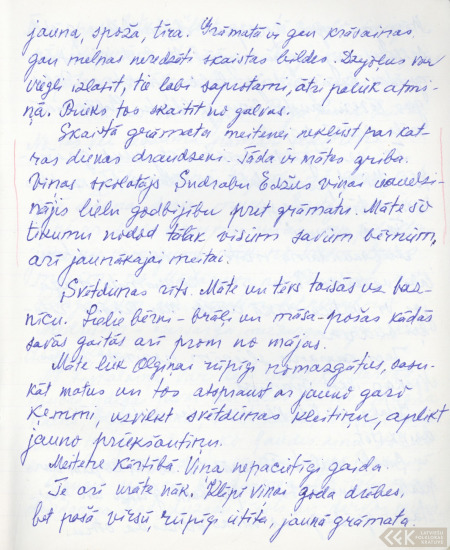 jauna, spoža, tīra. Grāmatā ir gan krāsainas,
gan melnas neredzēti skaistas bildes. Dzejoļus var
viegli izlasīt, tie labi saprotami, ātri paliek atmi-
ņā. Prieks tos skaitīt no galvas.
Skaistā grāmata meitenei nekļūst par kat-
ras dienas draudzeni. Tāda ir mātes griba.
Viņas skolotājs Sudrabu Edžus viņai iaudzi-
nājis lielu godbijību pret grāmatu. Māte šo
tikumu nodod tālāk visiem saviem bērniem,
arī jaunākajai meitai.
Svētdienas rīts. Māte un tēvs taisās uz baz-
nīcu. Lielie bērni - brāļi un māsa - pošas kādās
savās gaitās arī prom no mājas.
Māte liek Olginai rūpīgi nomazgāties, sasu-
kāt matus un tos atspraust ar jauno garo
ķemmi, uzvilkt svētdienas kleitiņu, aplikt
jauno priekšautiņu.
Meitene kārtībā. Viņa nepacietīgi gaida.
Te arī māte nāk. Klēpī viņai goda drēbes,
bet pašā virsū, rūpīgi ietīta, jaunā grāmata.
LATVIEŠU
FOLKLORAS
KRĀTUVE